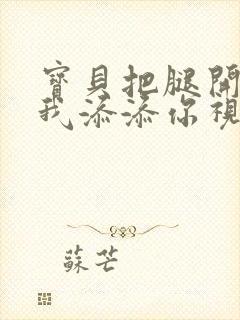 寶貝把腿開
我添添你視
蘇芒